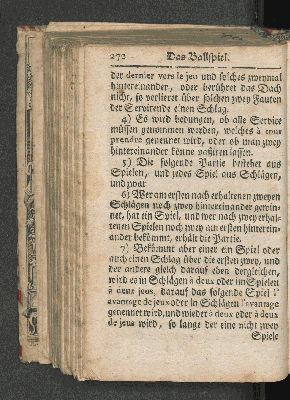 272 Das Ballspiel.
der dernier vers le jeu und solches zweymal
hintereinander, oder berühret das Dach
nicht, so verlieret über solchen zwey Fauten
der Servirende einen Schlag.
4) Es wird bedungen, ob alle Service
müssen genommen werden, welches à tous
prendre genennet wird, oder ob man zwey
hintereinander könne passiren lassen.
5) Die folgende Partie bestehet aus
Spielen, und jedes Spiel aus Schlägen,
und zwar
6) Wer am ersten nach erhaltenen zweyen
Schlägen noch zwey hintereinander gewin-
net, hat ein Spiel, und wer nach zwey erhal-
tenen Spielen noch zwey am ersten hinterein-
ander bekömmt, erhält die Partie.
7) Bekommt aber einer ein Spiel oder
auch einen Schlag über die ersten zwey, und
der andere gleich darauf eben dergleichen,
wird es in Schlägen à deux oder im Spielen
à deux jeux, darauf das folgende Spiel l'
avantage de jeux oder in Schlägen l'avantage
genennet wird, und wieder à deux oder à deux
de jeux wird, so lange der eine nicht zwey
Spiele